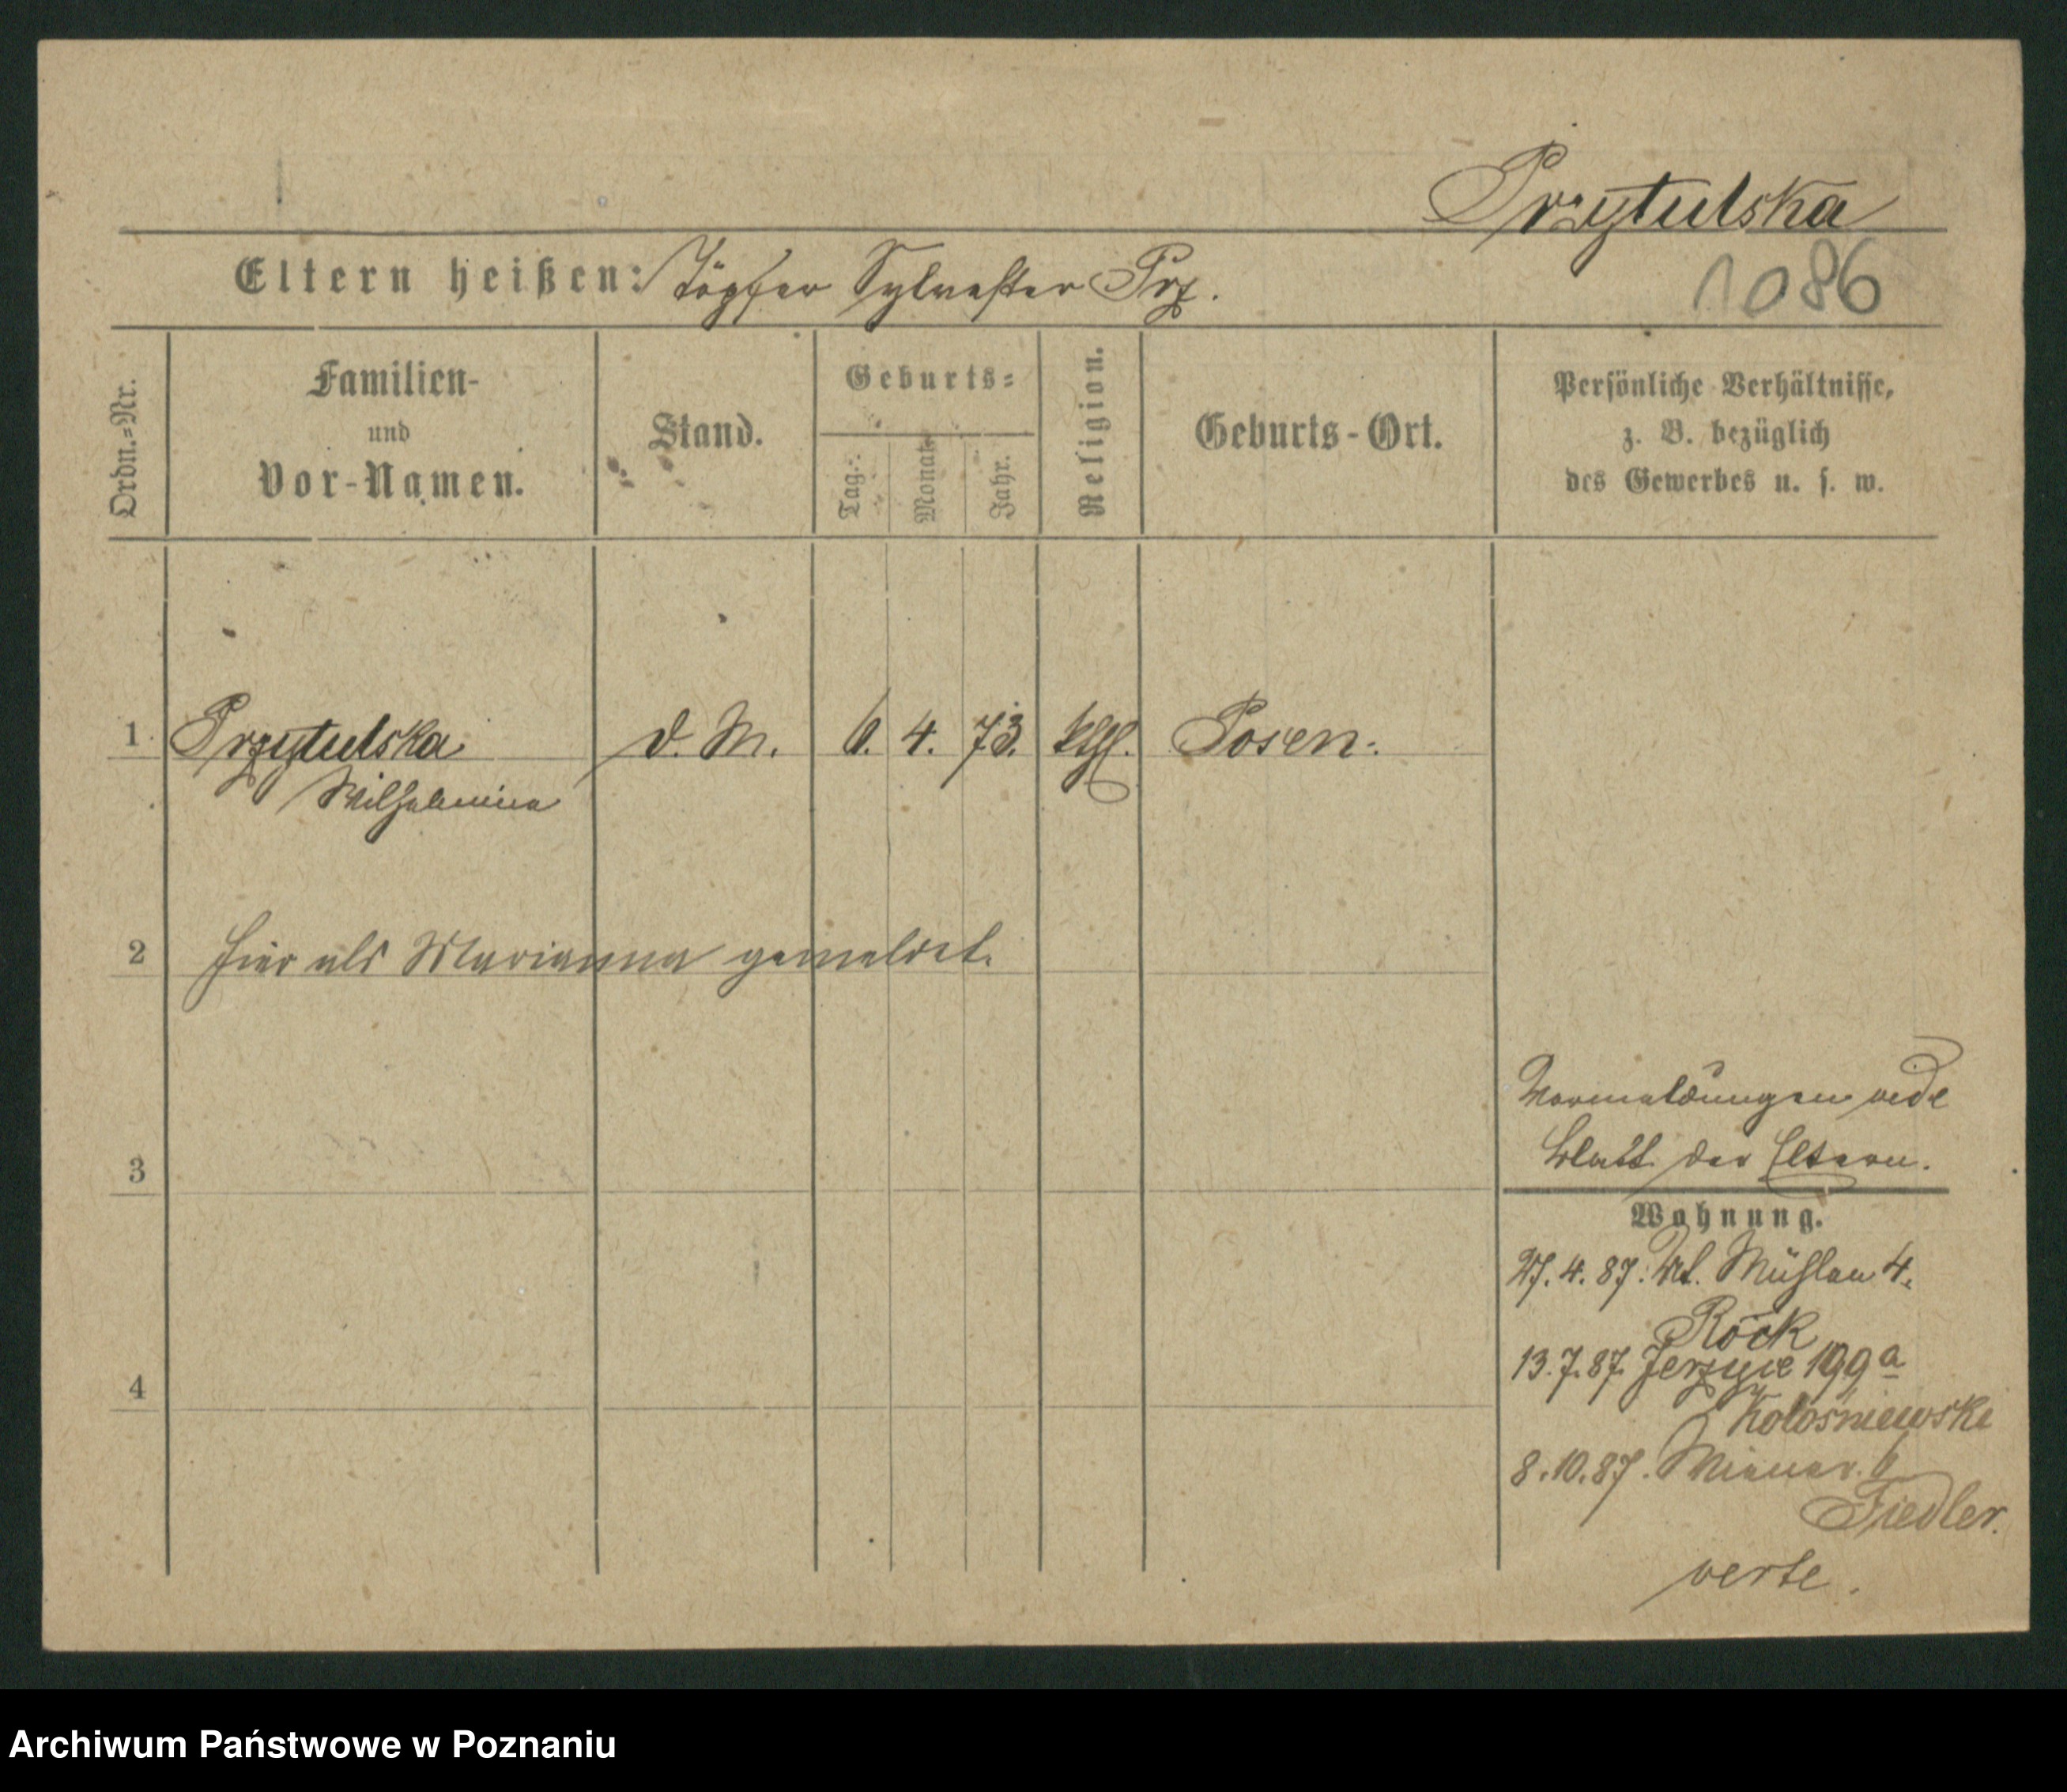 Przytulska
1086
Eltern heißen: Töpfer Sylvester Prz.
Ordn.=Nr.
Familien-
und
Vor-Namen.
Stand.
Geburts=
Tag.
Monat.
Jahr.
Religion.
Geburts-Ort.
Persönliche Verhältnisse,
z. B. bezüglich
des Gewerbes u. s. w.
1 Przytulska d. M. 6. 4. 73. kth. Posen.
Wilhelmina
2 hier als Marianna gemeldet.
Vormeldungen vide
Blatt der Eltern.
3
Wohnung.
27. 4. 87. Mühlen 4.
Röck
13. 7. 87. Jerzyce 199a
4
Kolosniewski
8. 10. 87. Wiener. 6
Fiedler.
verte.
Archiwum Państwowe w Poznaniu